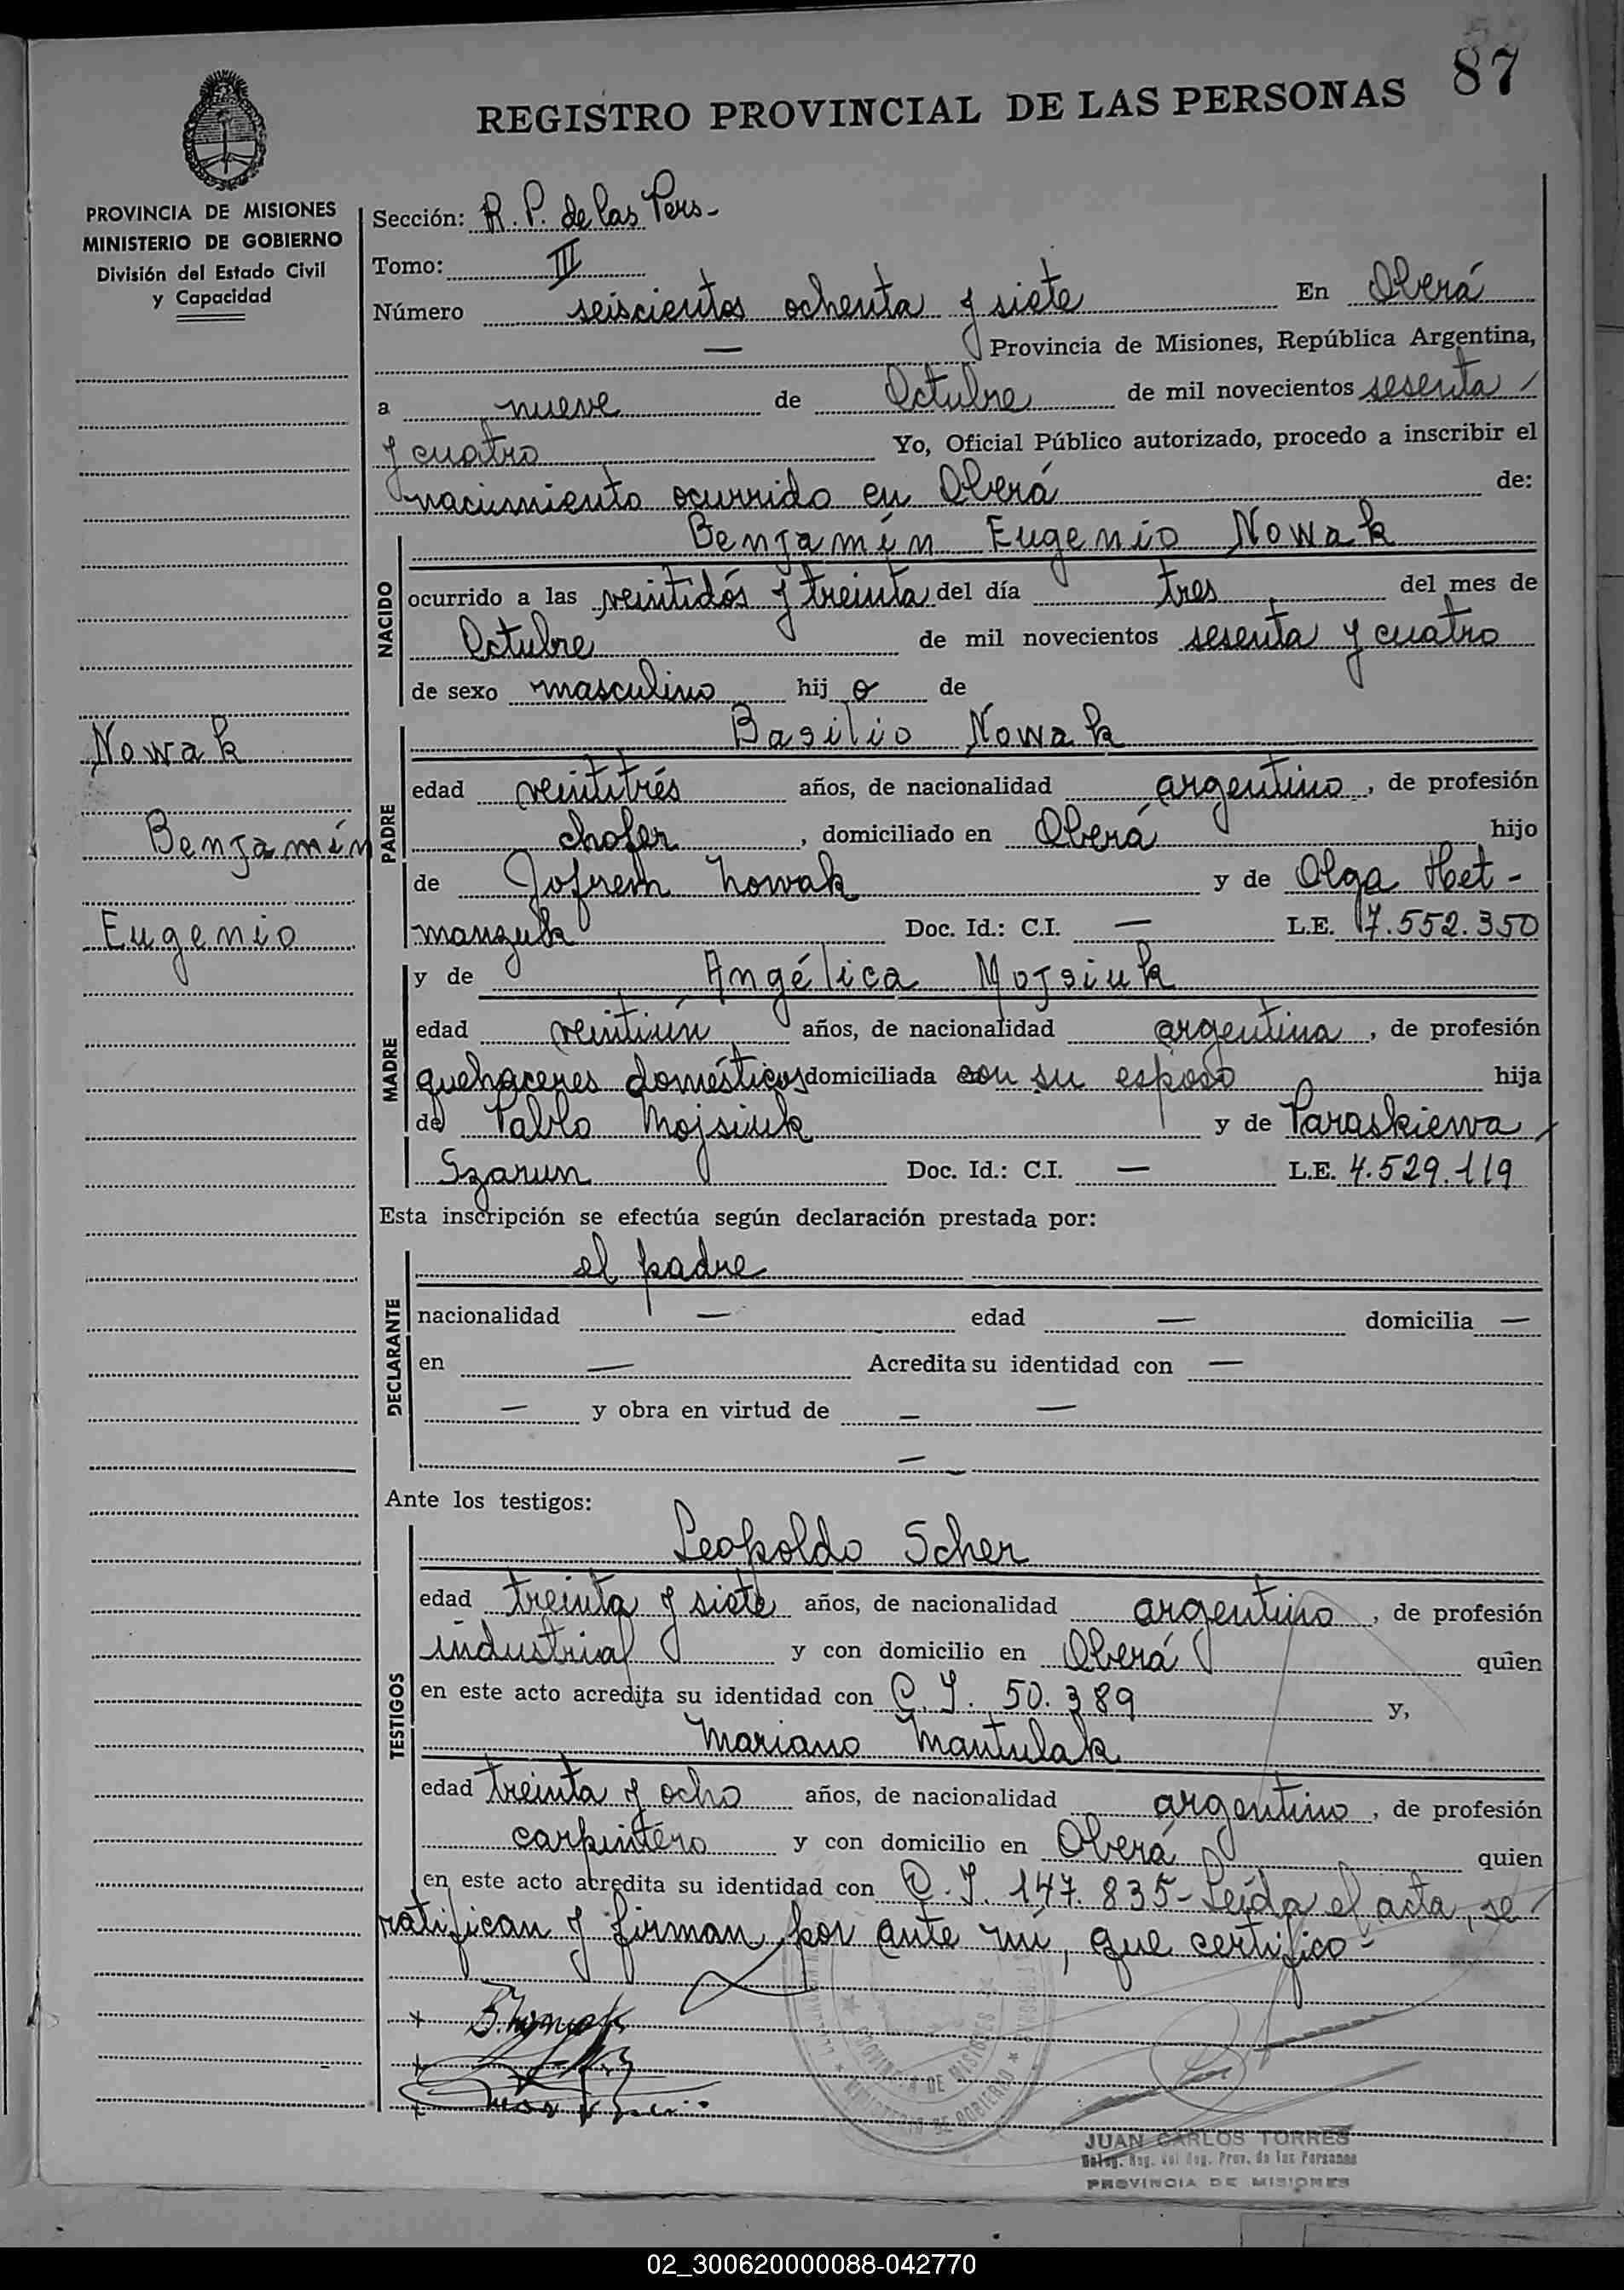 87
REGISTRO PROVINCIAL DE LAS PERSONAS
PROVINCIA DE MISIONES
MINISTERIO DE GOBIERNO
División del Estado Civil
y Capacidad
Nowak
Benjamín
Eugenio
Sección: R. P. de las Pers-
Tomo: III
Número seiscientos ochenta y siete En Oberá
— Provincia de Misiones, República Argentina,
a nueve de Octubre de mil novecientos sesenta
y cuatro Yo, Oficial Público autorizado, procedo a inscribir el
nacimiento ocurrido en Oberá de:
NACIDO
Benjamín Eugenio Nowak
ocurrido a las veintidós y treinta del día tres del mes de
Octubre de mil novecientos sesenta y cuatro
de sexo masculino hij o de
PADRE
Basilio Nowak
edad veintitrés años, de nacionalidad argentino, de profesión
chofer, domiciliado en Oberá hijo
de Jofrem Nowak y de Olga Het-
manzuk Doc. Id.: C.I. — L.E. 7.552.350
MADRE
y de Angélica Mojsiuk
edad veintiún años, de nacionalidad argentina, de profesión
quehaceres domésticos domiciliada con su esposo hija
de Pablo Mojsiuk y de Paraskiewa
Szarun Doc. Id.: C.I. — L.E. 4.529.119
Esta inscripción se efectúa según declaración prestada por:
DECLARANTE
el padre
nacionalidad — edad — domicilia —
en — Acredita su identidad con —
— y obra en virtud de — —
—
Ante los testigos:
TESTIGOS
Leopoldo Scher
edad treinta y siete años, de nacionalidad argentino, de profesión
industrial y con domicilio en Oberá quien
en este acto acredita su identidad con C. I. 50.389 y,
Mariano Mantulak
edad treinta y ocho años, de nacionalidad argentino, de profesión
carpintero y con domicilio en Oberá quien
en este acto acredita su identidad con C. I. 147.835- Leída el acta, se
ratifican y firman por ante mí, que certifico-
B. Nowak
PROVINCIA DE MISIONES
MINISTERIO DE GOBIERNO
JUAN CARLOS TORRES
PROVINCIA DE MISIONES
02_300620000088-042770